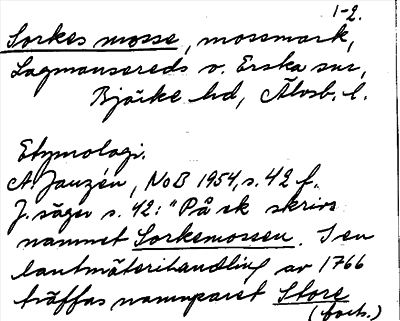 1-2.
Sorkes mosse, mossmark,
Lagmansereds o. Erska snr,
Bjärke hd, Älvsb. l.
Etymologi.
A. Janzén, NoB 1954, s. 42 f.
J. säger s. 42: "På ek skrivs
namnet Sorkemossen. I en
lantmäterihandling av 1766
träffas namnparet Store
(forts.)